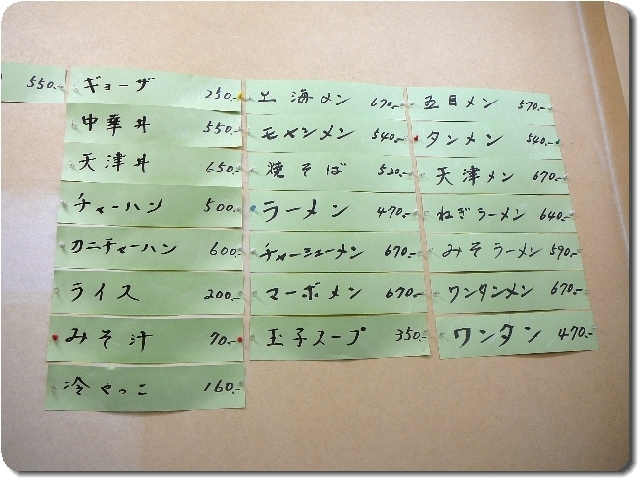 550.-
ギョーザ 250.-
中華丼 550.-
天津丼 650.-
チャーハン 500.-
カニチャーハン 600.-
ライス 200.-
みそ汁 70.-
冷やっこ 160.-
上海メン 670.-
モヤシメン 540.-
焼そば 520.-
ラーメン 470.-
チャーシューメン 670.-
マーボメン 670.-
玉子スープ 350.-
五目メン 570.-
タンメン 540.-
天津メン 670.-
ねぎラーメン 640.-
みそラーメン 590.-
ワンタンメン 670.-
ワンタン 470.-